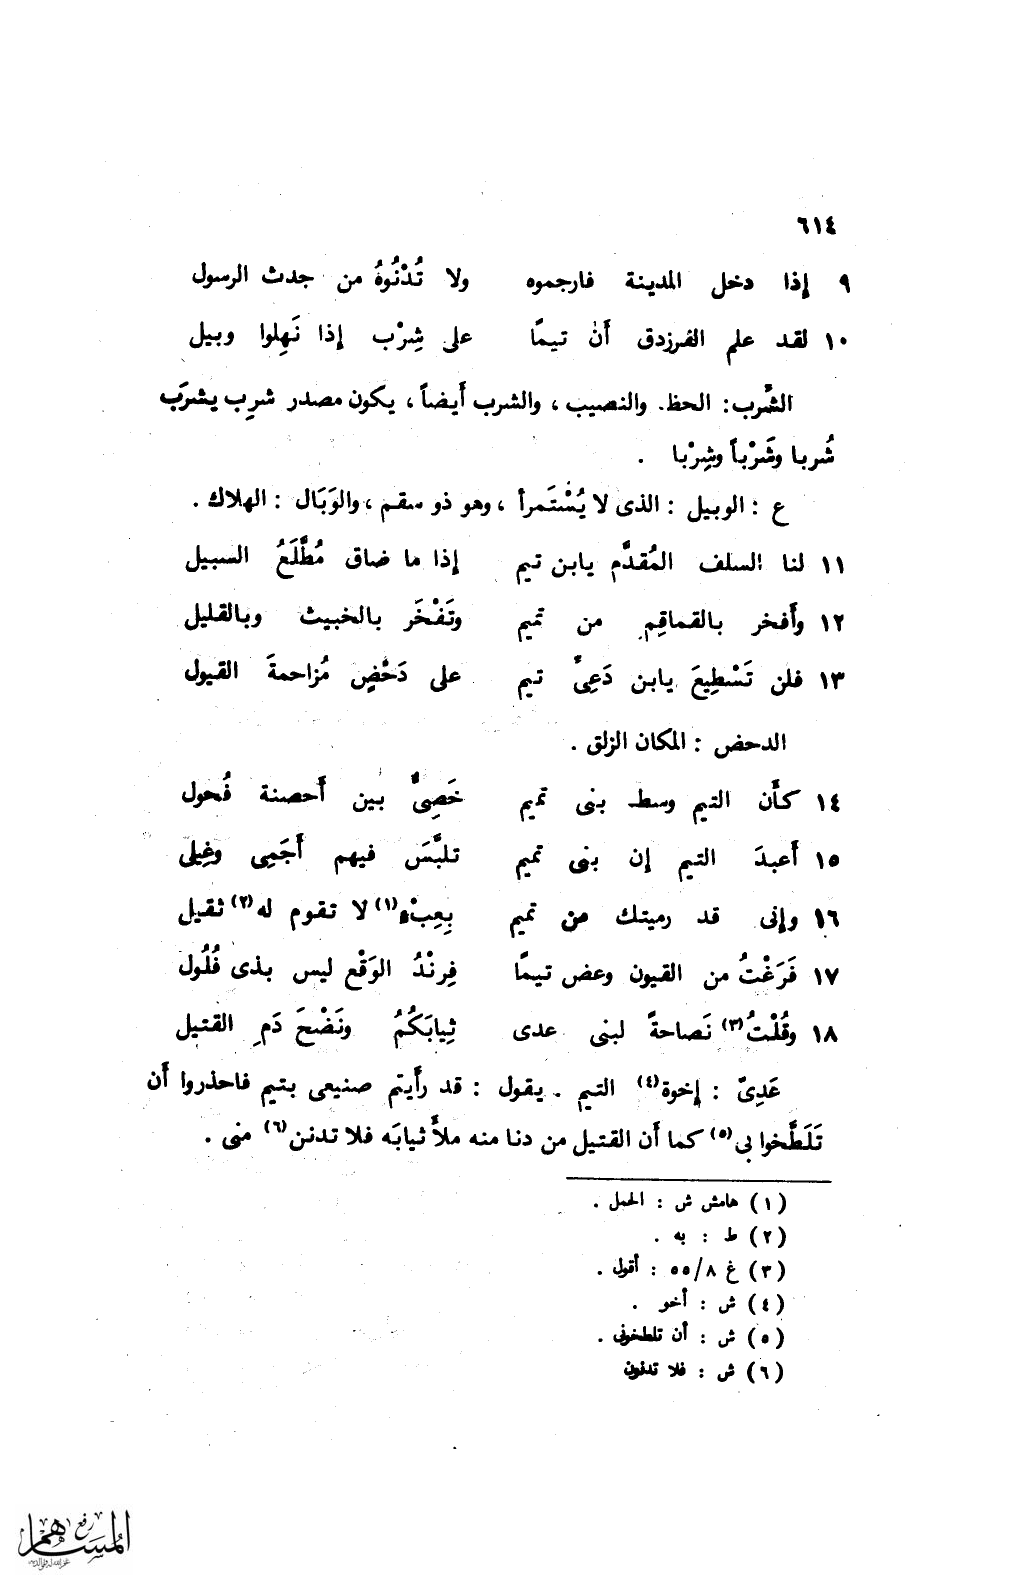 ٦١٤
٩ إذا دخل المدينة فارجموه ولا تُدْنُوهُ من جدث الرسول
١٠ لقد علم الفرزدق أن تيمًا على شِرْب إذا نَهِلوا وبيل
الشُّرب: الحظ. والنصيب، والشرب أيضاً، يكون مصدر شرِب يشرَب
شُربا وشَرْباً وشِرْبا .
ع : الوبيل : الذى لا يُسْتَمرأ ، وهو ذو سقم، والوَبَال : الهلاك .
١١ لنا السلف المُقدَّم يابن تيم إذا ما ضاق مُطَّلَعُ السبيل
١٢ وأَفخر بالقماقِم من تميم وتَفْخَر بالخبيث وبالقليل
١٣ فلن تَسْطِيعَ يابن دَعِىِّ تيم على دَحْضٍ مُزاحمةَ القيول
الدحض : المكان الزلق .
١٤ كأَن التيم وسط بنى تميم خَصِىٌّ بين أَحصنة فُحول
١٥ أَعبدَ التيم إن بنى تميم تلبَّسَ فيهم أَجَمِى وغِيلى
١٦ وإنى قد رميتك من تميم بِعِبْء(١) لا تقوم له(٢) ثقيل
١٧ فَرَغْتُ من القيون وعض تيمًا فِرِنْدُ الوَقْع ليس بذى فُلُول
١٨ وقُلْتُ(٣) نَصاحةً لبنى عدى ثِيابَكُمُ ونَضْحَ دَمِ القتيل
عَدِىّ : إخوة(٤) التيم . يقول : قد رأَيتم صنيعى بتيم فاحذروا أَن
تَلَطَّخوا بى(٥) كما أَن القتيل من دنا منه ملأَ ثيابَه فلا تدنن(٦) منى .
(١) هامش ش : الحمل .
(٢) ط : به .
(٣) غ ٨/٥٥ : أقول .
(٤) ش : أخو .
(٥) ش : أن تلطخونى .
(٦) ش : فلا تدنون
رفع
المساهم